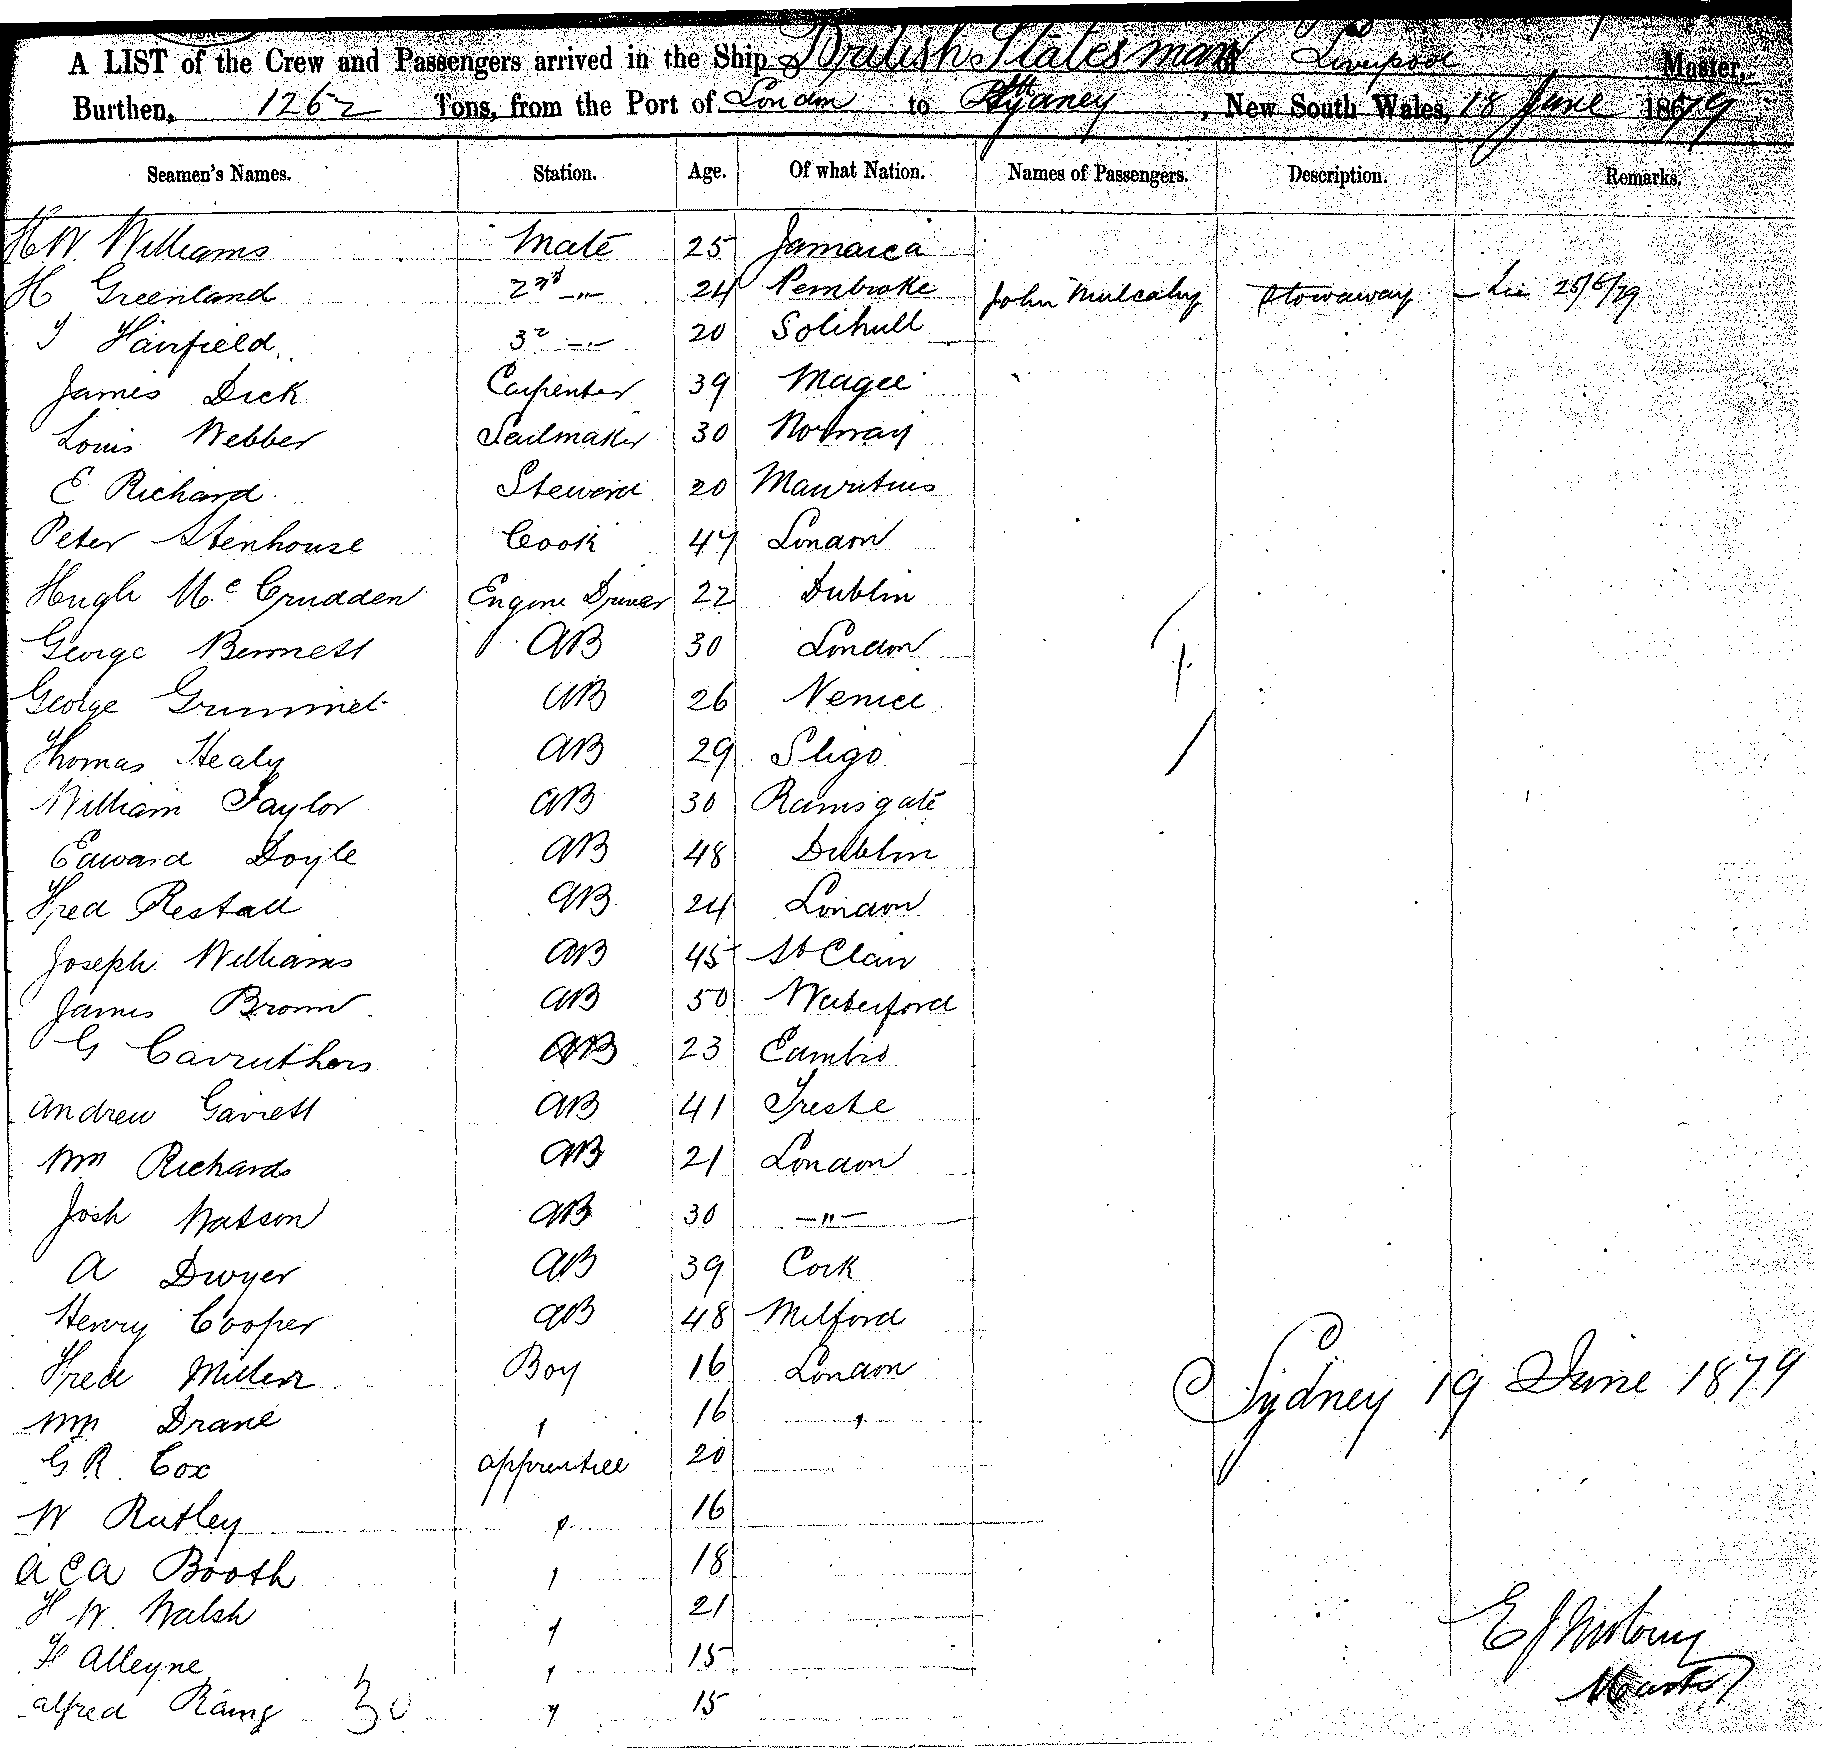 A LIST of the Crew and Passengers arrived in the Ship British Statesman of Liverpool Master,
Burthen, 1262 Tons, from the Port of London to Sydney, New South Wales, 18 June 1879
Seamen's Names. Station. Age. Of what Nation. Names of Passengers. Description. Remarks.
H W. Williams Mate 25 Jamaica
H Greenland 2nd -"- 24 Pembroke John Mulcahy Stowaway
Hairfield 3rd -"- 20 Solihull
James Dick Carpenter 39 Magee
Louis Webber Sailmaker 30 Norway
E Richard Steward 20 Mauritius
Peter Stenhouse Cook 47 London
Hugh McCrudden Engine Driver 22 Dublin
George Bennett AB 30 London
George Grummet AB 26 Venice
Thomas Healy AB 29 Sligo
William Taylor AB 30 Ramsgate
Edward Doyle AB 48 Dublin
Fred Restall AB 24 London
Joseph Williams AB 45 St Clair
James Brown AB 50 Waterford
G Carruthers AB 23
Andrew Garrett AB 41 Trieste
Wm Richards AB 21 London
Josh Watson AB 30 -"-
A Dwyer AB 39 Cork
Henry Cooper AB 48 Milford
Fred Miller Boy 16 London
Wm Drane " 16 "
G R. Cox apprentice 20
W Rutley " 16
A C A Booth " 18
H W. Walsh " 21
F Alleyne " 15
Alfred 30 " 15
Sydney 19 June 1879
Master